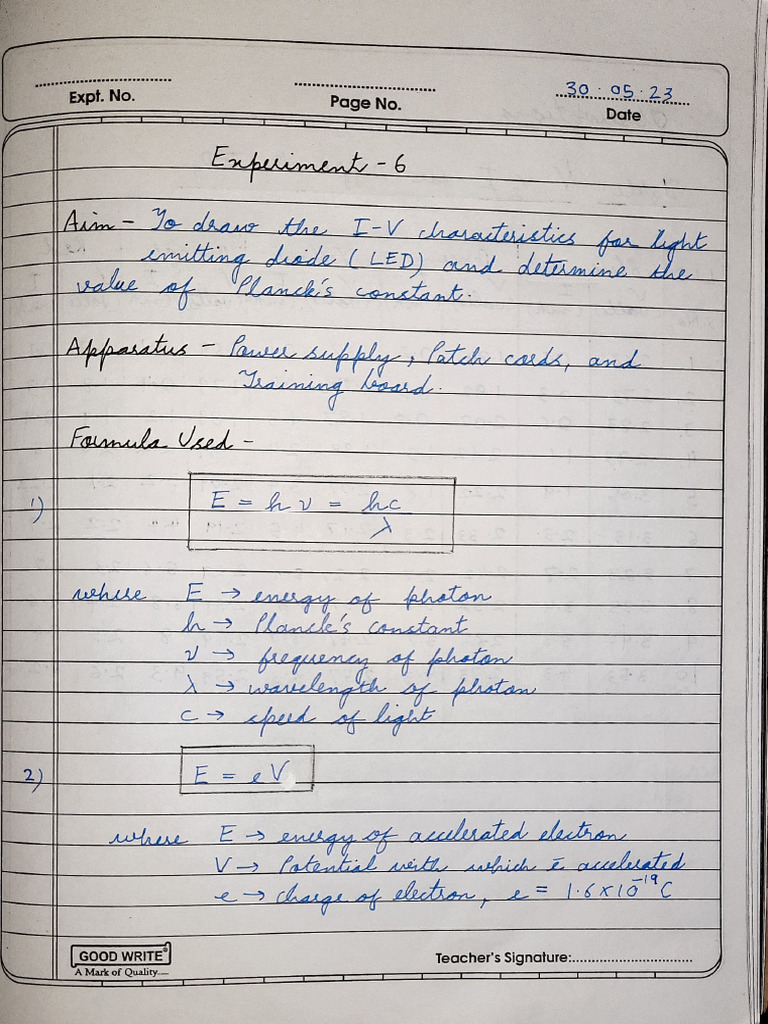 30.05.23
Expt. No.
Page No.
Date
Experiment - 6
Aim - To draw the I-V characteristics for light
emitting diode (LED) and determine the
value of Planck's constant.
Apparatus - Power supply, Patch cords, and
Training board.
Formula Used -
1) E = hν = hc/λ
where E → energy of photon
h → Planck's constant
ν → frequency of photon
λ → wavelength of photon
c → speed of light
2) E = eV
where E → energy of accelerated electron
V → Potential with which ē accelerated
e → charge of electron, e = 1.6×10⁻¹⁹ C
GOOD WRITE
A Mark of Quality
Teacher's Signature: